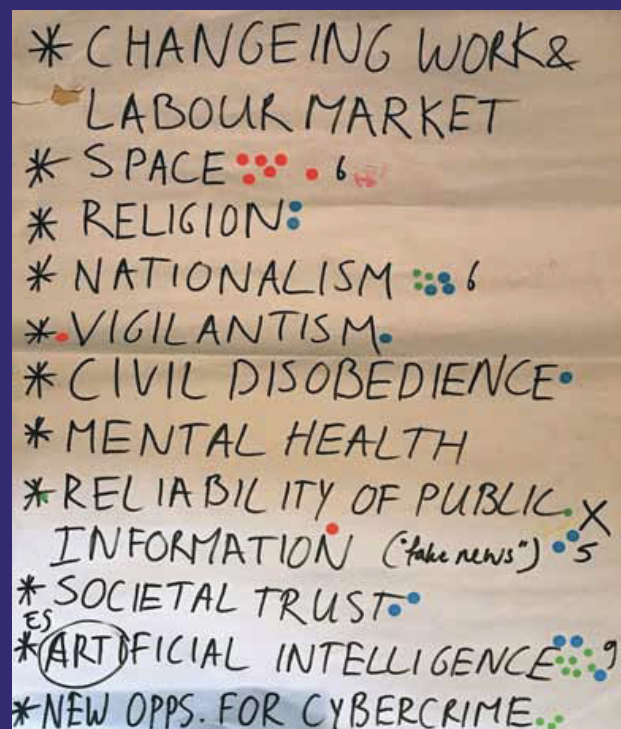 * CHANGEING WORK &
LABOUR MARKET
* SPACE 6
* RELIGION
* NATIONALISM 6
* VIGILANTISM
* CIVIL DISOBEDIENCE
* MENTAL HEALTH
* RELIABILITY OF PUBLIC X
INFORMATION ("fake news") 5
* SOCIETAL TRUST
ES
* ARTIFICIAL INTELLIGENCE 9
* NEW OPPS. FOR CYBERCRIME